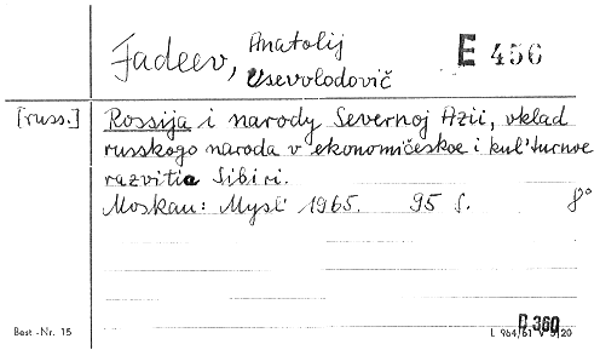 Fadeev, Anatolij
Vsevolodovič
E 456
[russ.]
Rossija i narody Severnoj Azii, vklad
russkogo naroda v ekonomičeskoe i kul'turnoe
razvitie Sibiri.
Moskau: Mysl' 1965. 95 S. 8°
Best.-Nr. 15
D 360
L 964/61 V 5/20